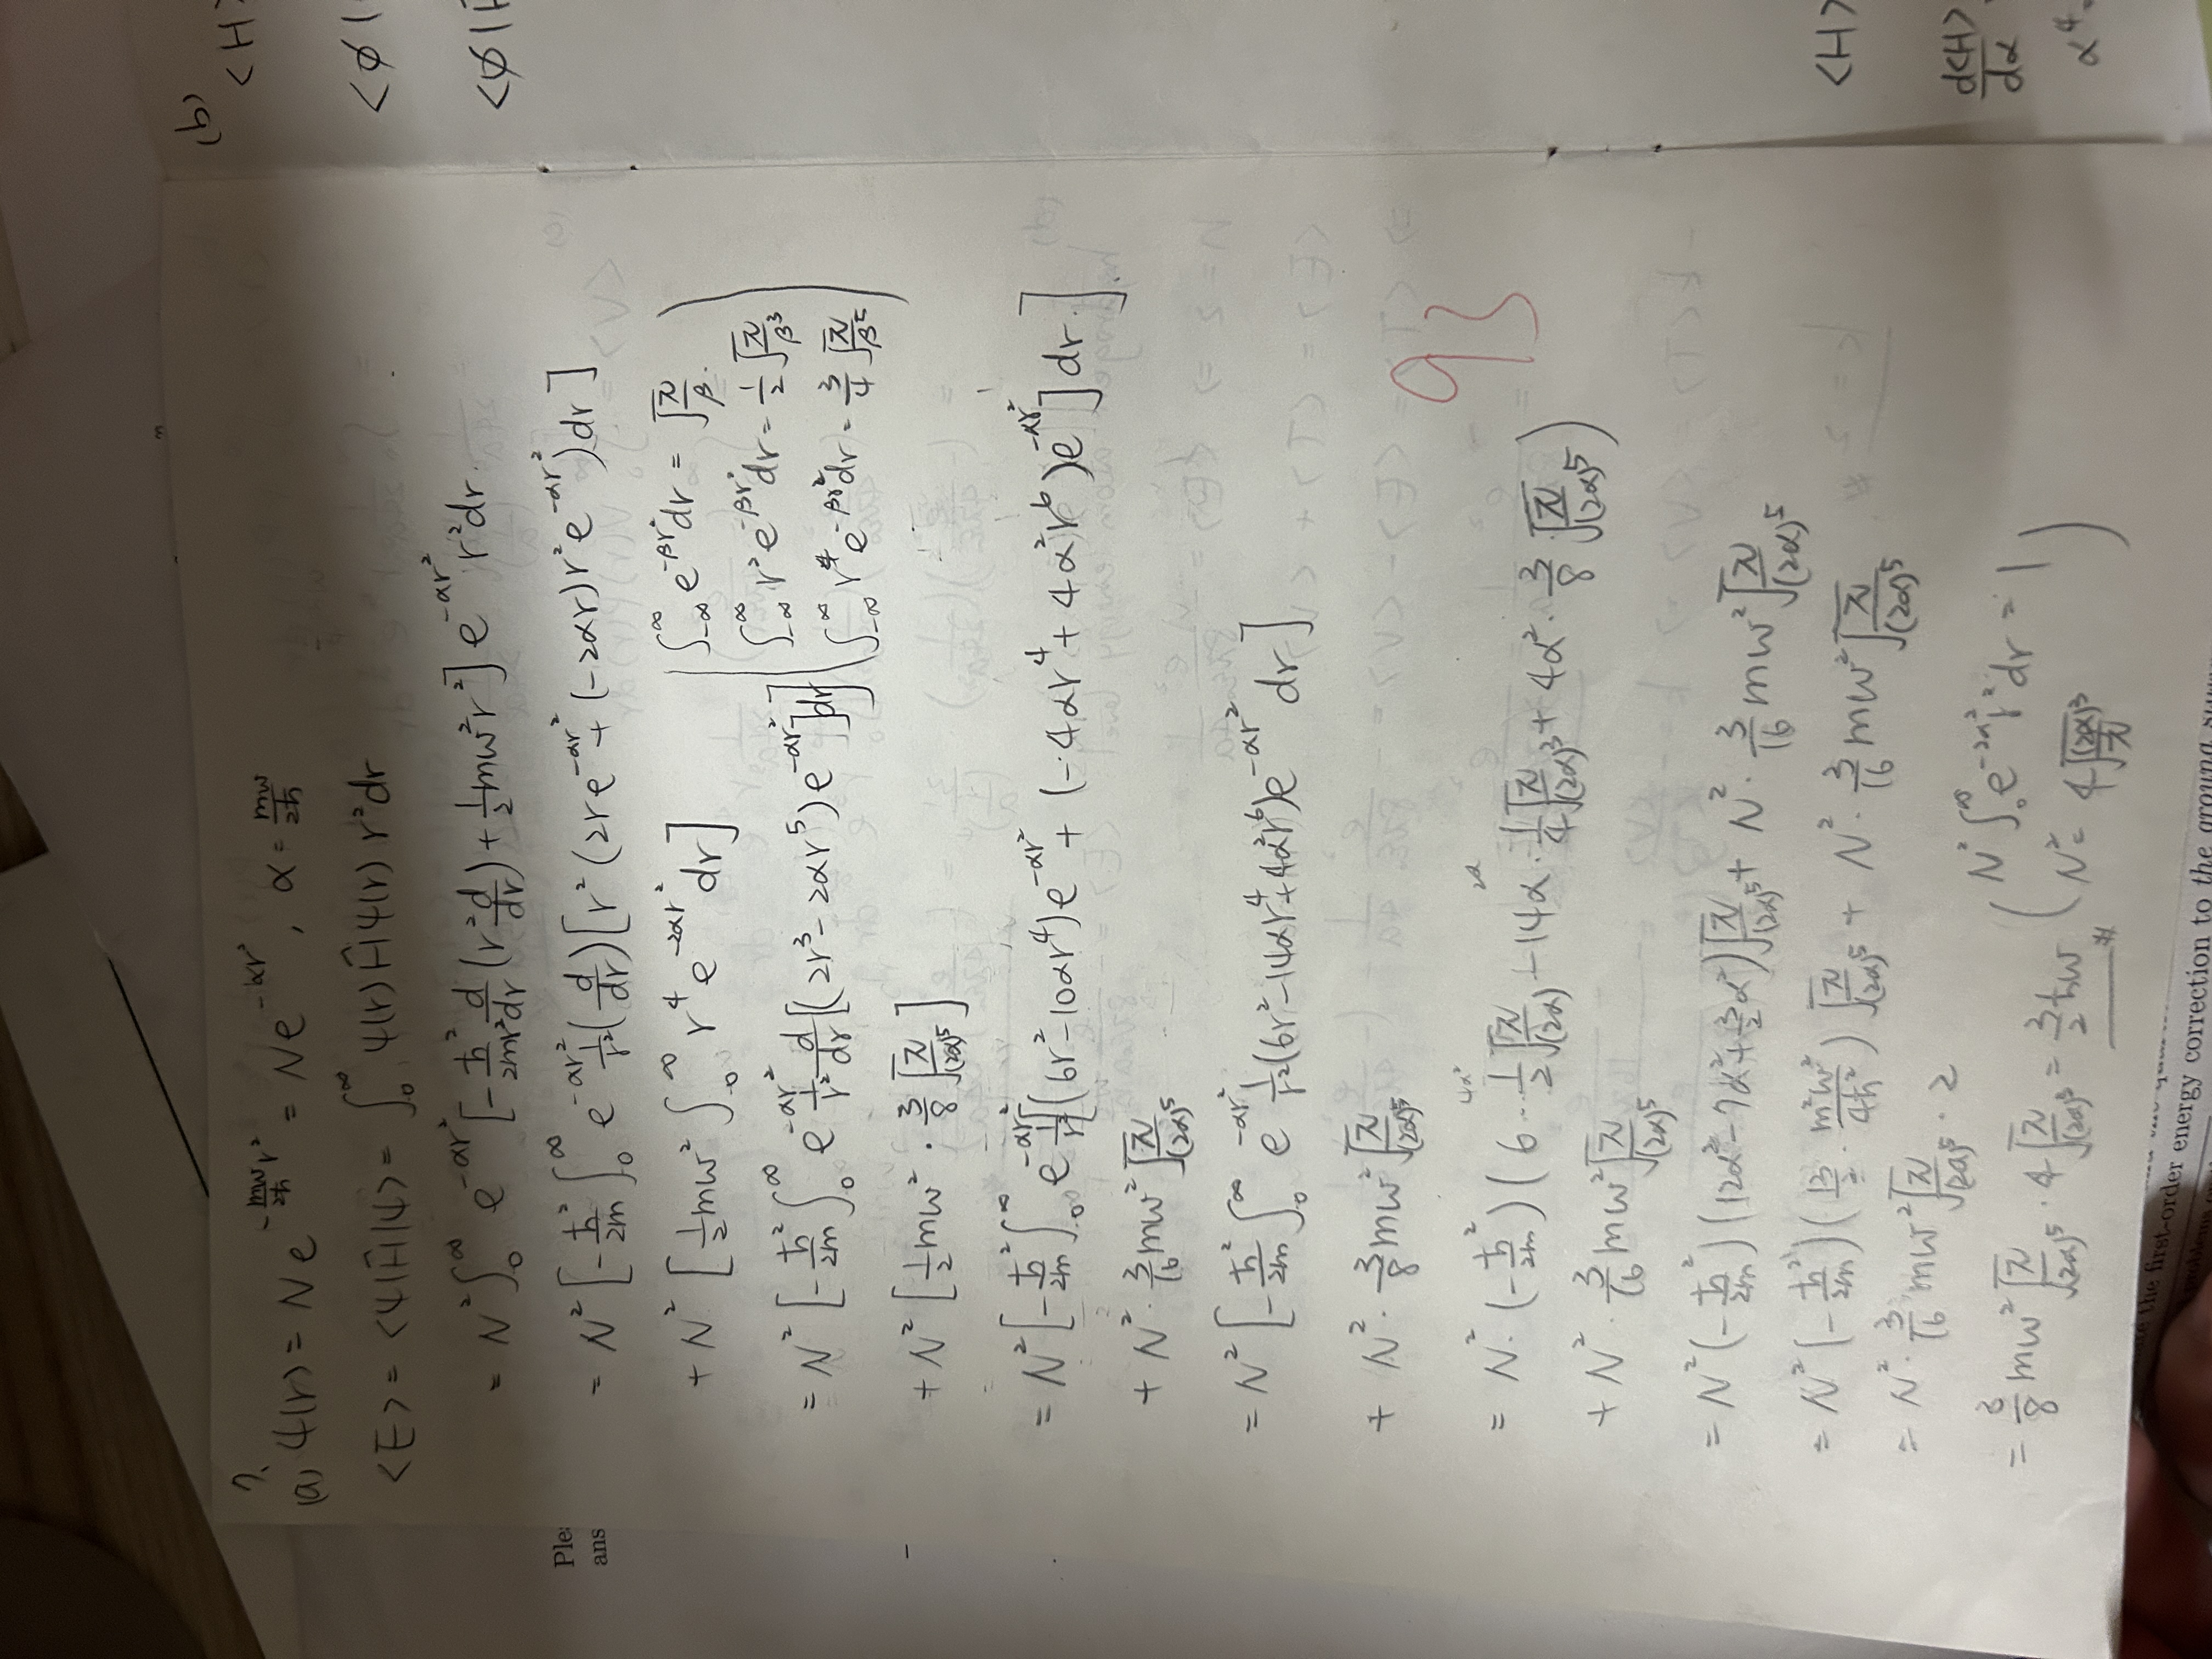 7.
(a) Ψ(r) = N e^{-\frac{mω}{2ħ}r²} = N e^{-αr²}, α = \frac{mω}{2ħ}
<E> = <Ψ|Ĥ|Ψ> = ∫₀^∞ Ψ(r) Ĥ Ψ(r) r² dr
= N² ∫₀^∞ e^{-αr²} [-\frac{ħ²}{2mr²} \frac{d}{dr} (r² \frac{d}{dr}) + \frac{1}{2} mω²r²] e^{-αr²} r² dr.
= N² [-\frac{ħ²}{2m} ∫₀^∞ e^{-αr²} \frac{1}{r²} (\frac{d}{dr}) [r² (2re^{-αr²} + (-2αr) r² e^{-αr²}) dr]
+ N² [\frac{1}{2} mω² ∫₀^∞ r⁴ e^{-2αr²} dr]
∫_{-∞}^∞ e^{-βr²} dr = \sqrt{\frac{π}{β}}.
∫_{-∞}^∞ r² e^{-βr²} dr = \frac{1}{2} \sqrt{\frac{π}{β³}}
∫_{-∞}^∞ r⁴ e^{-βr²} dr = \frac{3}{4} \sqrt{\frac{π}{β⁵}}
= N² [-\frac{ħ²}{2m} ∫₀^∞ e^{-αr²} \frac{1}{r²} \frac{d}{dr} [(2r³ - 2αr⁵) e^{-αr²}] dr]
+ N² [\frac{1}{2} mω² · \frac{3}{8} \sqrt{\frac{π}{(2α)⁵}}]
= N² [-\frac{ħ²}{2m} ∫₀^∞ e^{-αr²} \frac{1}{r²} [(6r² - 10αr⁴) e^{-αr²} + (-4αr⁴ + 4α²r⁶) e^{-αr²}] dr.]
+ N² · \frac{3}{16} mω² \sqrt{\frac{π}{(2α)⁵}}
= N² [-\frac{ħ²}{2m} ∫₀^∞ e^{-αr²} \frac{1}{r²} (6r² - 14αr⁴ + 4α²r⁶) e^{-αr²} dr]
+ N² · \frac{3}{8} mω² \sqrt{\frac{π}{(2α)⁵}}
4α² 2α
= N² · (-\frac{ħ²}{2m}) (6 · \frac{1}{2} \sqrt{\frac{π}{(2α)}} - 14α · \frac{1}{4} \sqrt{\frac{π}{(2α)³}} + 4α² · \frac{3}{8} \sqrt{\frac{π}{(2α)⁵}})
+ N² · \frac{3}{16} mω² \sqrt{\frac{π}{(2α)⁵}}
93
= N² (-\frac{ħ²}{2m}) (12α² - 7α² + \frac{3}{2}α²) \sqrt{\frac{π}{(2α)⁵}} + N² · \frac{3}{16} mω² \sqrt{\frac{π}{(2α)⁵}}
= N² (-\frac{ħ²}{2m}) (\frac{13}{2} · \frac{m²ω²}{4ħ²}) \sqrt{\frac{π}{(2α)⁵}} + N² · \frac{3}{16} mω² \sqrt{\frac{π}{(2α)⁵}}
= N² · \frac{3}{16} mω² \sqrt{\frac{π}{(2α)⁵}} · 2
= \frac{3}{8} mω² \sqrt{\frac{π}{(2α)⁵}} · 4 \sqrt{\frac{π}{(2α)³}} = \frac{3}{2} ħω #
N² ∫₀^∞ e^{-2αr²} r² dr = 1
N² = 4 \sqrt{\frac{(2α)³}{π}}
(b)
<H>
<ϕ|
<ϕ|
<H>
\frac{d<H>}{dα}
α⁴
Ple
ans
the first-order energy correction to the ground
problems